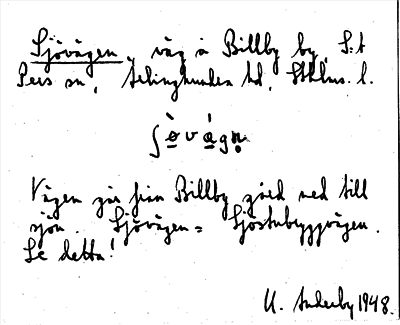 Sjövägen, väg i Billby by, S:t
Pers sn, Seminghundra hd, Sthlms l.
ʃö̀vágn.
Vägen går från Billby gård ned till
sjön. Sjövägen = Sjöstubyggvägen.
Se detta!
U. Sunderby 1948.